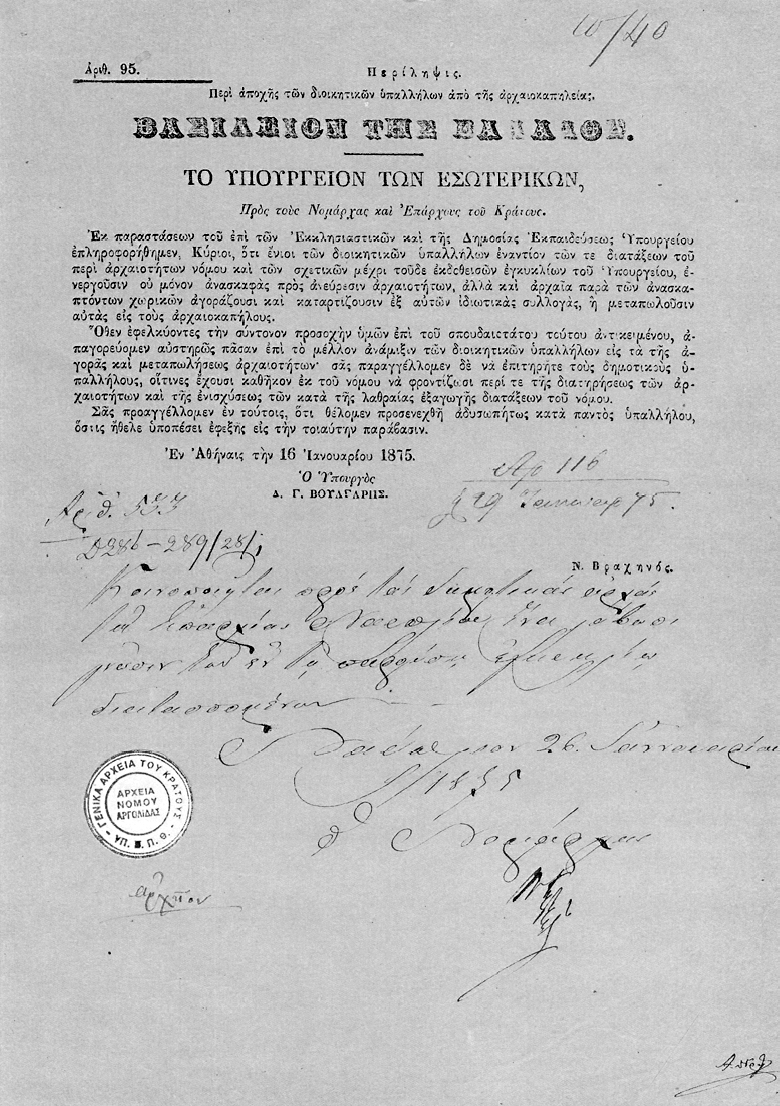 10/40
Ἀριθ. 95.
Περίληψις.
Περὶ ἀποχῆς τῶν διοικητικῶν ὑπαλλήλων ἀπὸ τῆς ἀρχαιοκαπηλείας.
ΒΑΣΙΛΕΙΟΝ ΤΗΣ ΕΛΛΑΔΟΣ.
ΤΟ ΥΠΟΥΡΓΕΙΟΝ ΤΩΝ ΕΣΩΤΕΡΙΚΩΝ,
Πρὸς τοὺς Νομάρχας καὶ Ἐπάρχους τοῦ Κράτους.
Ἐκ παραστάσεων τοῦ ἐπὶ τῶν Ἐκκλησιαστικῶν καὶ τῆς Δημοσίας Ἐκπαιδεύσεως Ὑπουργείου
ἐπληροφορήθημεν, Κύριοι, ὅτι ἔνιοι τῶν διοικητικῶν ὑπαλλήλων ἐναντίον τῶν τε διατάξεων τοῦ
περὶ ἀρχαιοτήτων νόμου καὶ τῶν σχετικῶν μέχρι τοῦδε ἐκδοθεισῶν ἐγκυκλίων τοῦ Ὑπουργείου, ἐ-
νεργοῦσιν οὐ μόνον ἀνασκαφὰς πρὸς ἀνεύρεσιν ἀρχαιοτήτων, ἀλλὰ καὶ ἀρχαῖα παρὰ τῶν ἀνασκα-
πτόντων χωρικῶν ἀγοράζουσι καὶ καταρτίζουσιν ἐξ αὐτῶν ἰδιωτικὰς συλλογὰς, ἢ μεταπωλοῦσιν
αὐτὰς εἰς τοὺς ἀρχαιοκαπήλους.
Ὅθεν ἐφελκύοντες τὴν σύντονον προσοχὴν ὑμῶν ἐπὶ τοῦ σπουδαιοτάτου τούτου ἀντικειμένου, ἀ-
παγορεύομεν αὐστηρῶς πᾶσαν ἐπὶ τὸ μέλλον ἀνάμιξιν τῶν διοικητικῶν ὑπαλλήλων εἰς τὰ τῆς ἀ-
γορᾶς καὶ μεταπωλήσεως ἀρχαιοτήτων· σᾶς παραγγέλλομεν δὲ νὰ ἐπιτηρῆτε τοὺς δημοτικοὺς ὑ-
παλλήλους, οἵτινες ἔχουσι καθῆκον ἐκ τοῦ νόμου νὰ φροντίζωσι περί τε τῆς διατηρήσεως τῶν ἀρ-
χαιοτήτων καὶ τῆς ἐνισχύσεως τῶν κατὰ τῆς λαθραίας ἐξαγωγῆς διατάξεων τοῦ νόμου.
Σᾶς προαγγέλλομεν ἐν τούτοις, ὅτι θέλομεν προσενεχθῆ ἀδυσωπήτως κατὰ παντὸς ὑπαλλήλου,
ὅστις ἤθελε ὑποπέσει ἐφεξῆς εἰς τὴν τοιαύτην παράβασιν.
Ἐν Ἀθήναις τὴν 16 Ἰανουαρίου 1875.
Ὁ Ὑπουργὸς
Δ. Γ. ΒΟΥΛΓΑΡΗΣ.
Ἀρ 116
29 Ἰανουαρ 75.
Ἀριθ. 533
Δ286-289/28/1
Ν. Βραχηνός.
Κοινοποιεῖται πρὸς τὰς δημοτικὰς ἀρχὰς
τῆς Ἐπαρχίας Ναυπλίας ἵνα λάβωσι
γνῶσιν τῶν ἐν τῇ παρούσῃ ἐγκυκλίῳ
διατασσομένων
26 Ἰαννουαρίου
1875
Ὁ Νομάρχης
ΓΕΝΙΚΑ ΑΡΧΕΙΑ ΤΟΥ ΚΡΑΤΟΥΣ
ΑΡΧΕΙΑ
ΝΟΜΟΥ
ΑΡΓΟΛΙΔΑΣ
ΥΠ. Ε. Π. Θ.
ἀρχεῖον